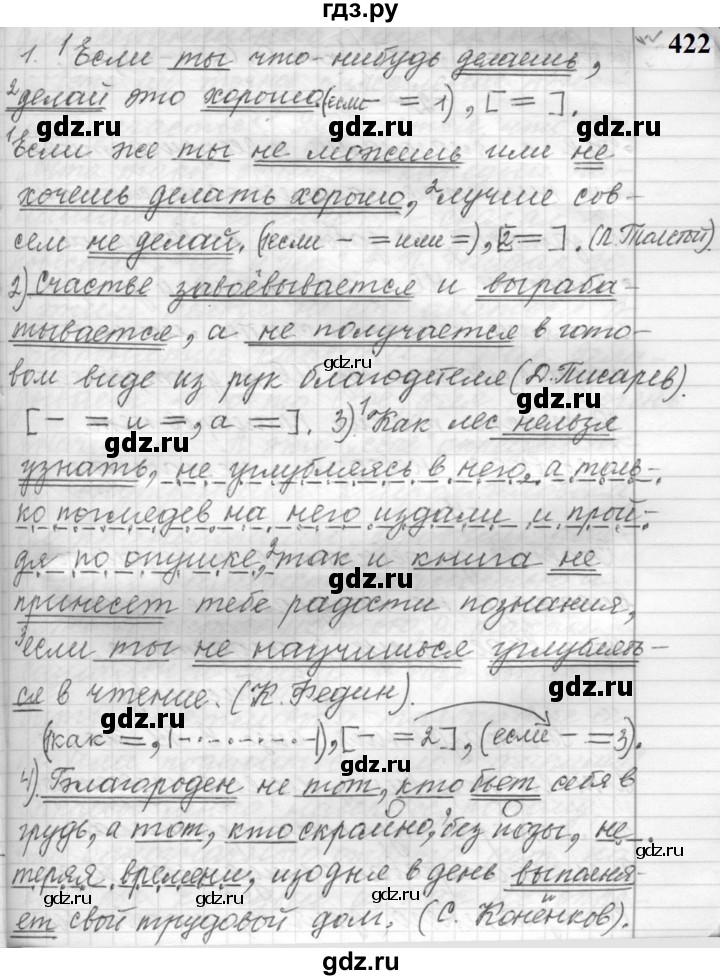 гдз.ру
422
1. ¹Если ты что-нибудь делаешь,
²делай это хорошо. (если - = 1), [=].
gdz.ru gdz.ru
¹Если же ты не можешь или не
хочешь делать хорошо, ²лучше сов-
gdz.ru gdz.ru
сем не делай. (1если - = или =), [2 =]. (Л. Толстой).
2) Счастье завоёвывается и выраба-
gdz.ru gdz.ru
тывается, а не получается в гото-
gdz.ru
вом виде из рук благодетеля (Д. Писарев).
gdz.ru gdz.ru
[- = и =, а =]. 3) ¹Как лес нельзя
gdz.ru
узнать, не углубляясь в него, а толь-
ко поглядев на него издали и прой-
gdz.ru gdz.ru
дя по опушке, ²так и книга не
gdz.ru
принесёт тебе радости познания,
gdz.ru gdz.ru
³если ты не научишься углублять-
ся в чтение. (К. Федин).
gdz.ru
(1как =, |-·-·-·-·-|), [- = 2], (если - = 3).
gdz.ru gdz.ru
4). Благороден не тот, кто бьёт себя в
gdz.ru
грудь, а тот, кто скромно, без позы, не
gdz.ru gdz.ru
теряя времени, изо дня в день выполня-
ет свой трудовой долг. (С. Конёнков).
gdz.ru